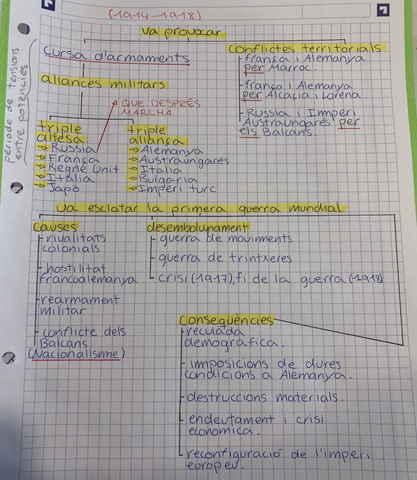 (1914-1918)
va provocar
període de tensions
entre potències
cursa d'armaments
conflictes territorials
- frança i Alemanya
per Marroc.
- frança i Alemanya
per Alcàcia i Lorena
- Russia i Imperi
Austraungarès per
els Balcans.
aliances militars
QUE DESPRÉS
MARXA
triple
altesa
Russia
França
Regne Unit
Italia
Japó
triple
aliança
Alemanya
Austraungarès
Italia
Bulgaria
Imperi turc
va esclatar la primera guerra mundial
causes
- rivalitats
colonials
- hostilitat
francoalemanya
- rearmament
militar
- conflicte dels
Balcans
(Nacionalisme)
desembolupament
- guerra de moviments
- guerra de trintxeres
- crisi (1917), fi de la guerra (1918)
Conseqüències
- recuada
demogràfica.
- imposicions de dures
condicions a Alemanya.
- destruccions materials.
- endeutament i crisi
econòmica.
- reconfiguració de l'imperi
europeu.